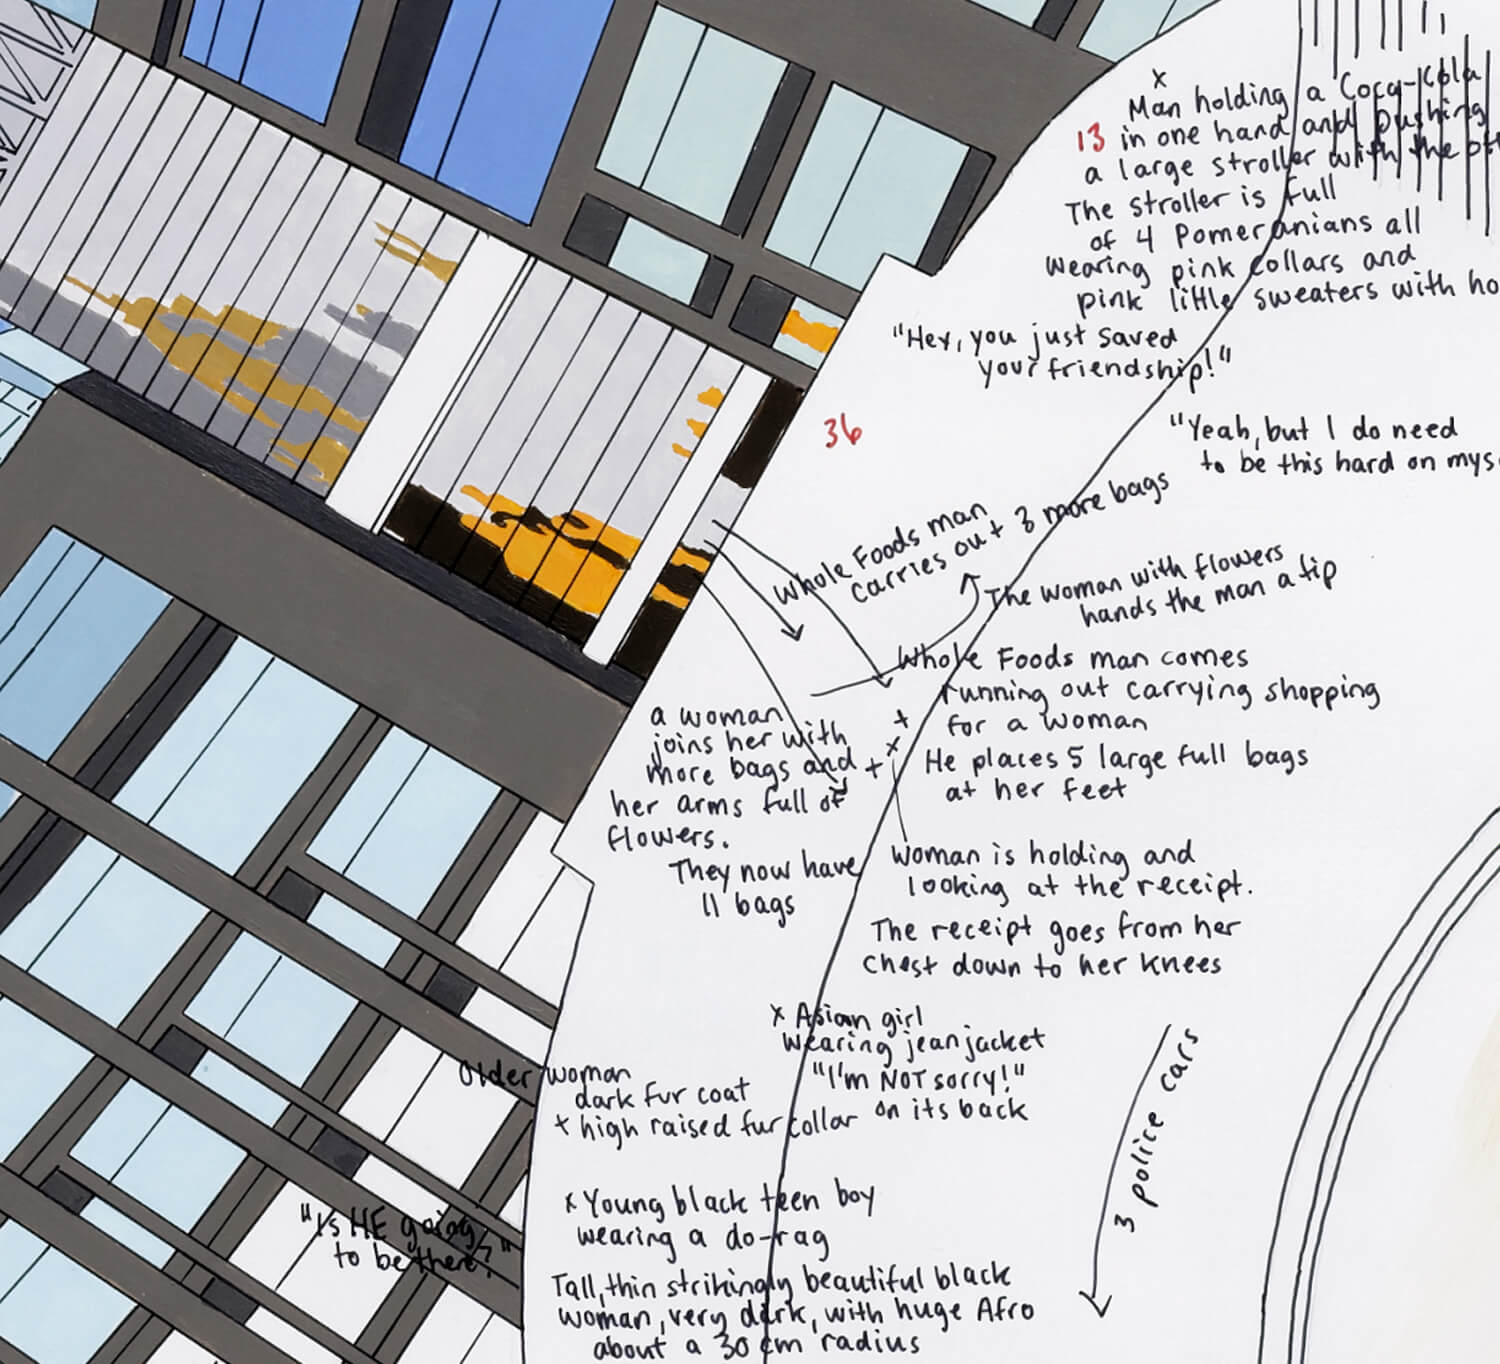 Man holding a Coca-Cola
13 in one hand and pushing
a large stroller with the
The stroller is full
of 4 Pomeranians all
wearing pink collars and
pink little sweaters with
"Hey, you just saved
your friendship!"
36
"Yeah, but I do need
to be this hard on
Whole Foods man
carries out 3 more bags
The woman with flowers
hands the man a tip
Whole Foods man comes
running out carrying shopping
for a woman
He places 5 large full bags
at her feet
a woman
joins her with
more bags and
her arms full of
flowers.
They now have
11 bags
Woman is holding and
looking at the receipt.
The receipt goes from her
chest down to her knees
x Asian girl
wearing jean jacket
"I'm NOT sorry!"
on its back
3 police cars
older woman
dark fur coat
+ high raised fur collar
"Is HE going
to be there?"
x Young black teen boy
wearing a do-rag
Tall, thin strikingly beautiful black
woman, very dark, with huge Afro
about a 30 cm radius